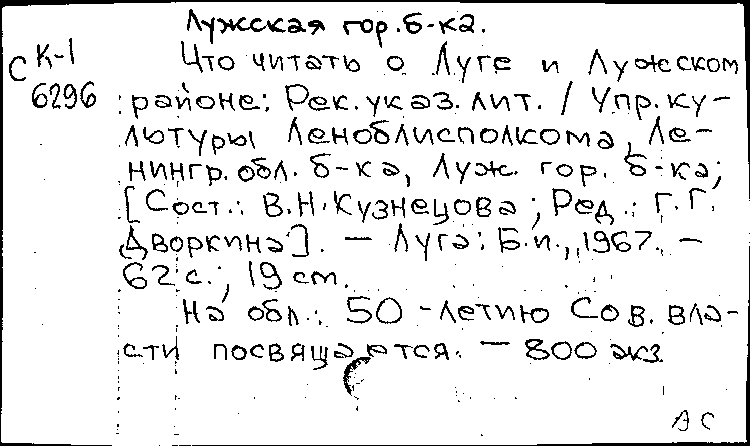 Лужская гор. б-ка.
С К-1
6296
Что читать о Луге и Лужском
районе: Рек. указ. лит. / Упр. ку-
льтуры Леноблисполкома, Ле-
нингр. обл. б-ка, Луж. гор. б-ка;
[Сост.: В.Н. Кузнецова; Ред.: Г.Г.
Дворкина]. — Луга: Б.и., 1967. —
62 с.; 19 cm.
На обл.: 50-летию Сов. вла-
сти посвящается. — 800 экз
АС